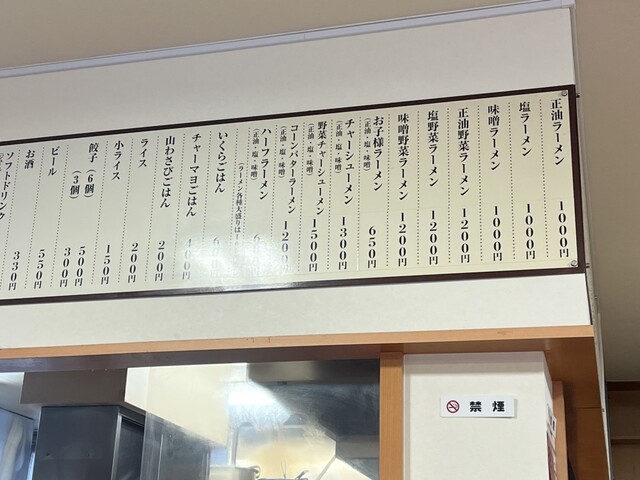 正油ラーメン 1000円
塩ラーメン 1000円
味噌ラーメン 1000円
正油野菜ラーメン 1200円
塩野菜ラーメン 1200円
味噌野菜ラーメン 1200円
お子様ラーメン 650円
(正油・塩・味噌)
チャーシューメン 1300円
(正油・塩・味噌)
野菜チャーシューメン 1500円
(正油・塩・味噌)
コーンバターラーメン 1200円
(正油・塩・味噌)
ハーフラーメン
(正油・塩・味噌)
(ラーメン各種大盛りは
いくらごはん
チャーマヨごはん 400円
山わさびごはん 200円
ライス 200円
小ライス 150円
餃子(6個) 500円
(3個) 300円
ビール 550円
お酒
ソフトドリンク 330円
禁煙